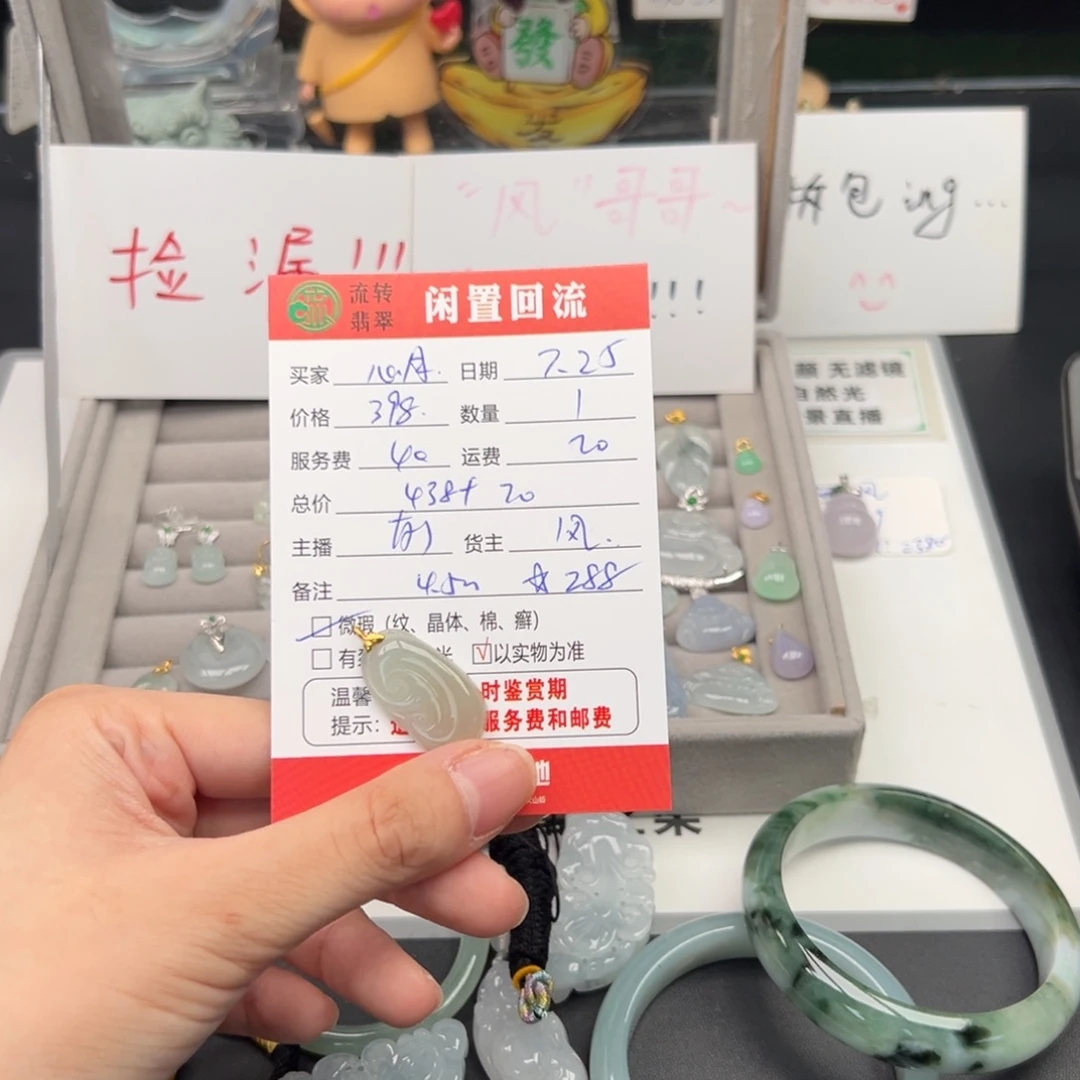 發
捡漏!!!
“风”哥哥~
!!!
拆包ing...
流转翡翠
闲置回流
买家 心月. 日期 7.25
价格 398. 数量 1
服务费 40 运费 20
总价 438+20
主播 货主 风.
备注 288
微瑕（纹、晶体、棉、癣）
以实物为准
温馨 时鉴赏期
提示: 服务费和邮费
颜 无滤镜
自然光
景直播